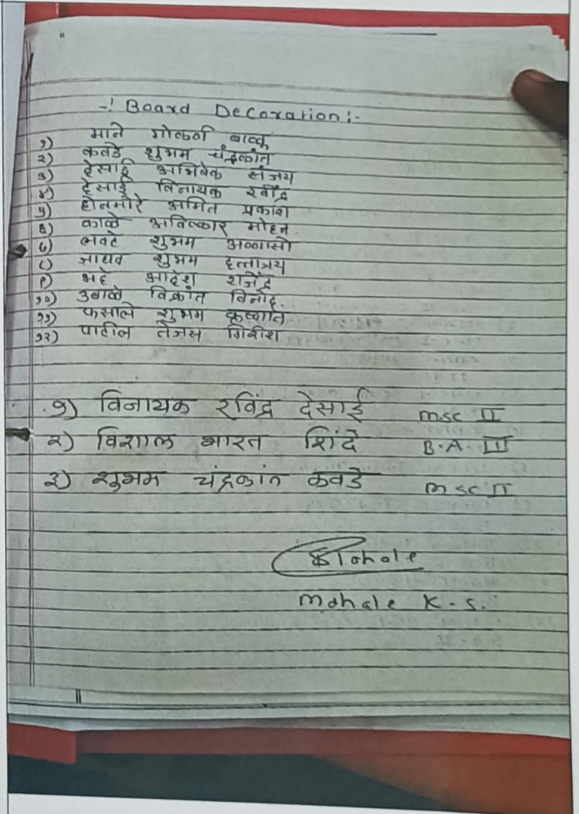 -: Board Decoration :-
१) माने गोकर्ण बाळू
२) कवडे शुभम चंद्रकांत
३) देसाई अभिषेक संजय
४) देसाई विनायक रवींद्र
५) होनमोरे अमित प्रकाश
६) काळे अविष्कार मोहन
७) शुभम
८) जाधव शुभम दत्तात्रय
९) भद्दे आदेश राजेंद्र
१०) उबाळे विक्रांत विनोद.
११) फसाले शुभम
१२) पाटील तेजस गिरीश
१) विनायक रविंद्र देसाई msc II
२) विशाल भारत शिंदे B.A. III
३) शुभम चंद्रकांत कवडे msc II
Mohale K.S.